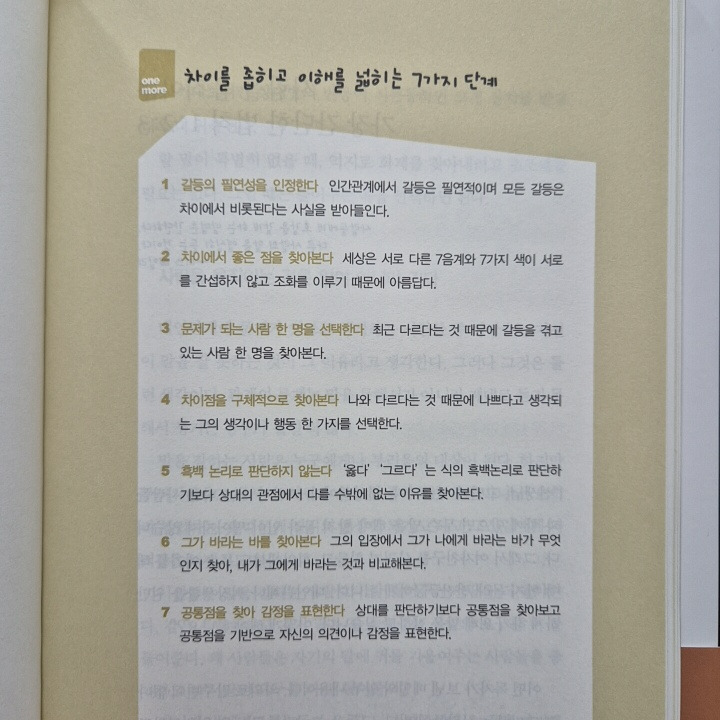 one
more
차이를 좁히고 이해를 넓히는 7가지 단계
1 갈등의 필연성을 인정한다 인간관계에서 갈등은 필연적이며 모든 갈등은
차이에서 비롯된다는 사실을 받아들인다.
2 차이에서 좋은 점을 찾아본다 세상은 서로 다른 7음계와 7가지 색이 서로
를 간섭하지 않고 조화를 이루기 때문에 아름답다.
3 문제가 되는 사람 한 명을 선택한다 최근 다르다는 것 때문에 갈등을 겪고
있는 사람 한 명을 찾아본다.
4 차이점을 구체적으로 찾아본다 나와 다르다는 것 때문에 나쁘다고 생각되
는 그의 생각이나 행동 한 가지를 선택한다.
5 흑백 논리로 판단하지 않는다 ‘옳다’ ‘그르다’는 식의 흑백논리로 판단하
기보다 상대의 관점에서 다를 수밖에 없는 이유를 찾아본다.
6 그가 바라는 바를 찾아본다 그의 입장에서 그가 나에게 바라는 바가 무엇
인지 찾아, 내가 그에게 바라는 것과 비교해본다.
7 공통점을 찾아 감정을 표현한다 상대를 판단하기보다 공통점을 찾아보고
공통점을 기반으로 자신의 의견이나 감정을 표현한다.